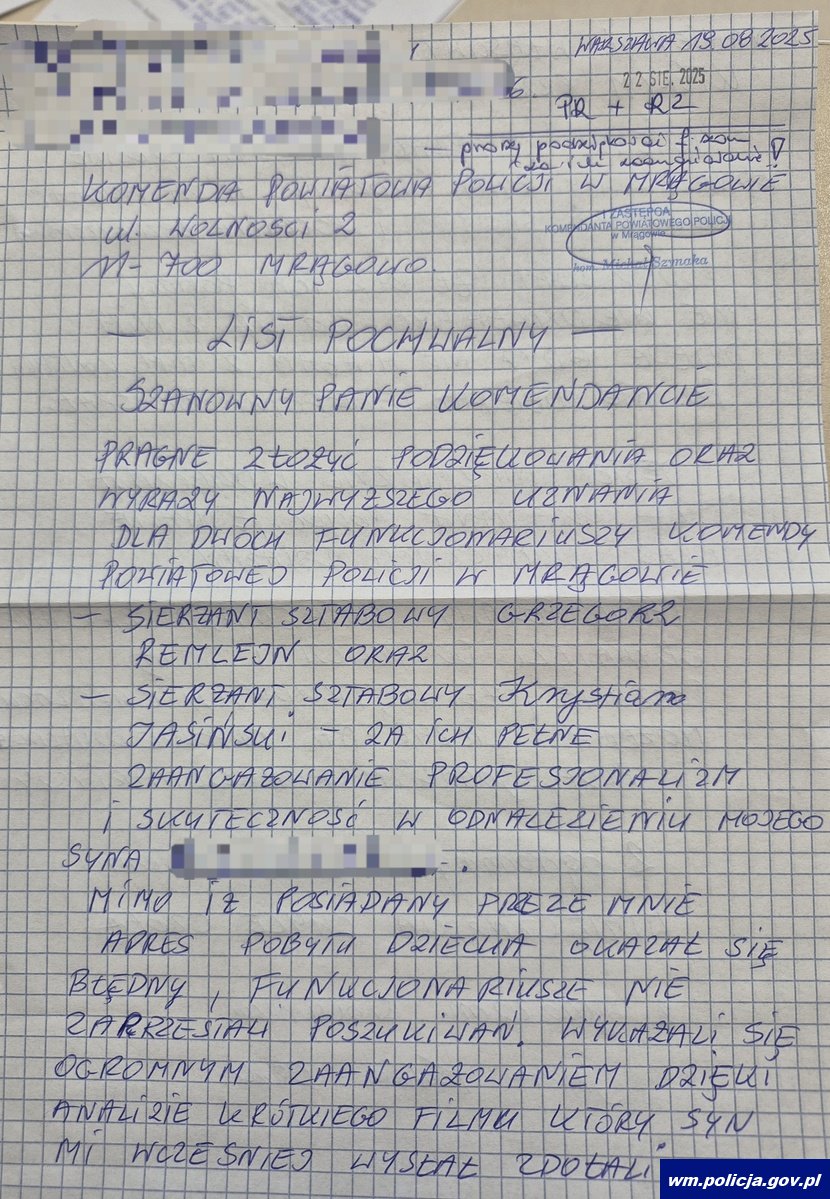 WARSZAWA 19.08.2025
22 SIE. 2025
PR + RZ
— proszę
KOMENDA POWIATOWA POLICJI W MRĄGOWIE
ul. WOLNOŚCI 2
11-700 MRĄGOWO
I ZASTĘPCA
KOMENDANTA POWIATOWEGO POLICJI
w Mrągowie
kom. Michał Szymaka
— LIST POCHWALNY —
SZANOWNY PANIE KOMENDANCIE
PRAGNE ZŁOŻYĆ PODZIĘKOWANIA ORAZ
WYRAZY NAJWYZSZEGO UZNANIA
DLA DWÓCH FUNKCJONARIUSZY KOMENDY
POWIATOWEJ POLICJI W MRĄGOWIE
— SIERZANT SZTABOWY GRZEGORZ
REMLEJN ORAZ
— SIERZANT SZTABOWY Krystian
JASIŃSKI – ZA ICH PEŁNE
ZAANGAZOWANIE PROFESJONALIZM
I SKUTECZNOŚĆ W ODNALEZIENIU MOJEGO
SYNA .
MIMO IZ POSIADANY PRZEZE MNIE
ADRES POBYTU DZIECKA OKAZAŁ SIĘ
BŁĘDNY, FUNKCJONARIUSZE NIE
ZAPRZESTALI POSZUKIWAN. WYKAZALI SIĘ
OGROMNYM ZAANGAZOWANIEM DZIĘKI
ANALIZIE KRÓTKIEGO FILMU KTÓRY SYN
MI WCZEŚNIEJ WYSŁAŁ ZDOŁALI
wm.policja.gov.pl